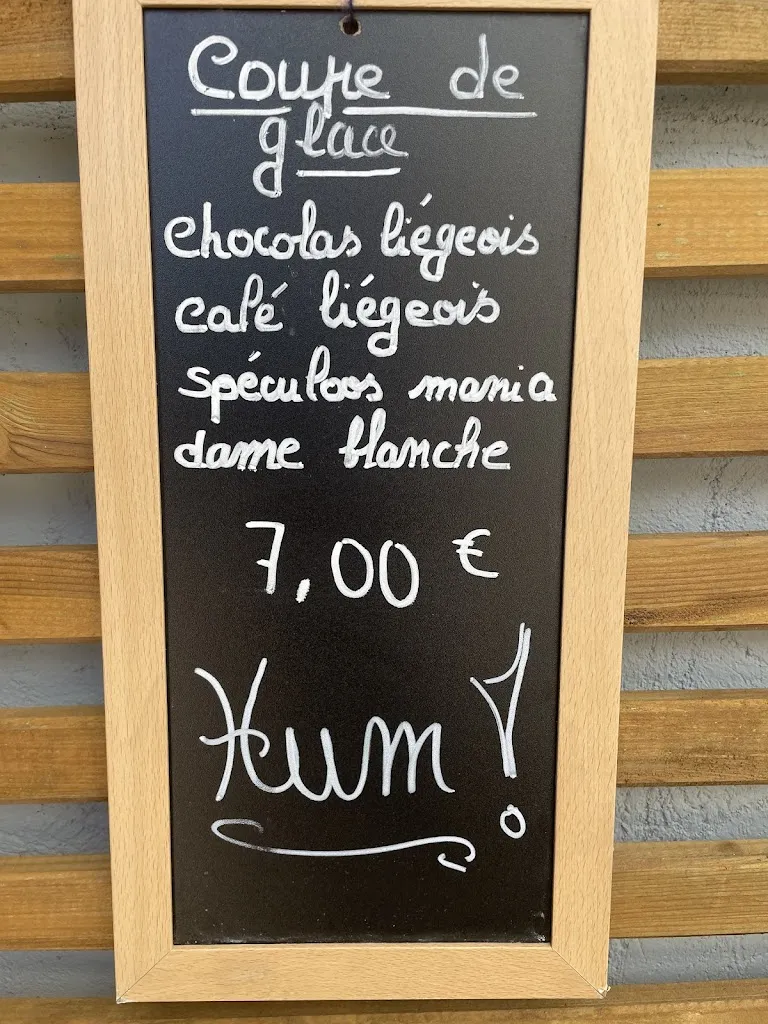 Coupe de
glace
chocolas liégeois
café liégeois
spéculoos mania
dame blanche
7,00 €
Hum !